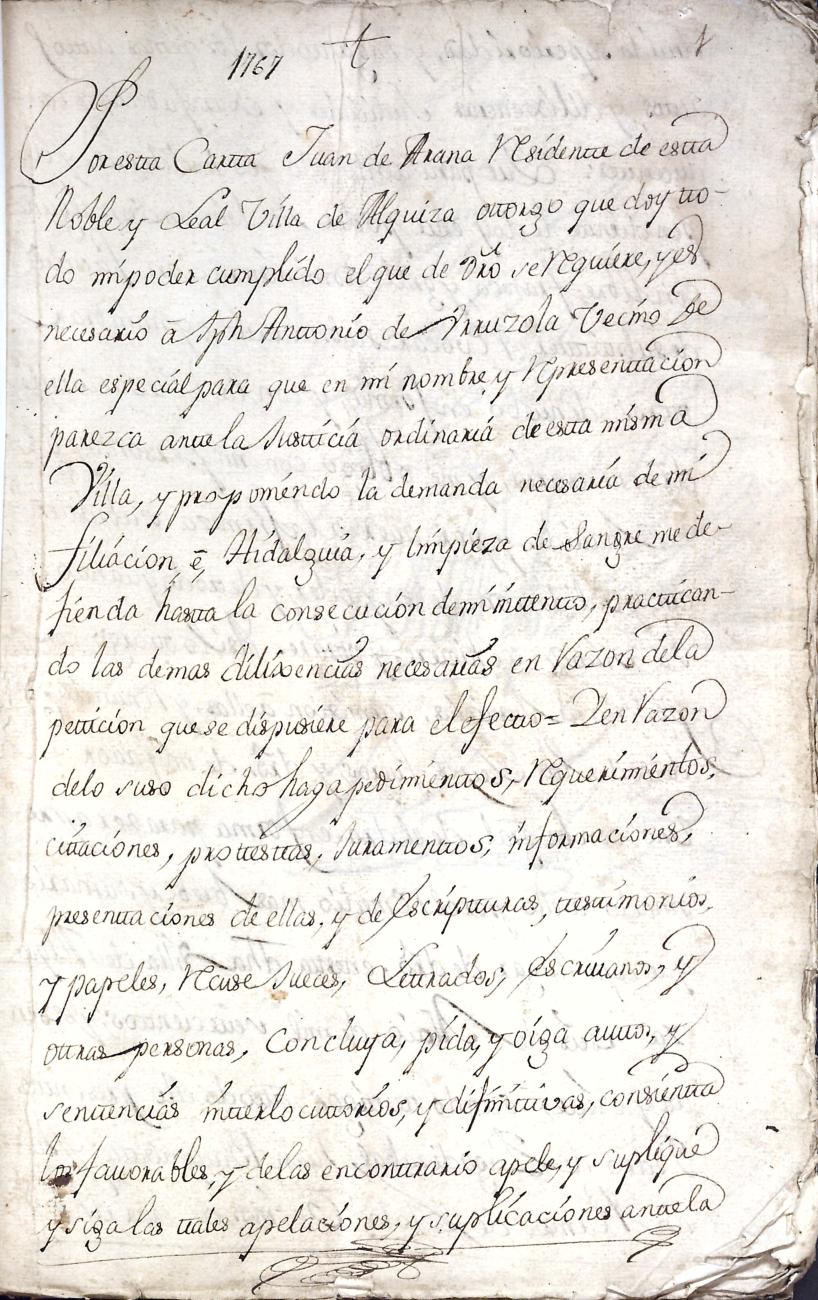 1767 t, 1
Por estta Cartta Juan de Arana Residentte de estta
Noble y Leal Villa de Alquiza ottorgo que doy tto-
do mi poder cumplido el que de drõ se requiere, y es
necesario â Jph Anttonio de Urruzola Vecino de
ella especial para que en mi nombre, y representtacion
parezca antte la Justticia ordinaria de estta misma
Villa, y proponiendo la demanda necesaria de mi
filiacion ē, Hidalguia, y limpieza de Sangre me de-
fienda hastta la consecucion de mi inttentto, practtican-
do las demas dilixencias necesarias en razon de la
pettición que se dispusiere para el efectto = Y en razon
de lo suso dicho haga pedimienttos, requerimientos,
cittaciones, prottesttas, Juramenttos, informaciones,
presenttaciones de ellas, y de escriptturas, ttesttimonios,
y papeles, recuse Jueces, Lettrados, escriuanos, y
ottras personas, concluya, pida, y oiga auttos, y
senttencias intterlocuttorios, y difinittivas, consientta
los fauorables, y de las en conttrario apele, y suplique
y siga las ttales apelaciones, y suplicaciones antte la